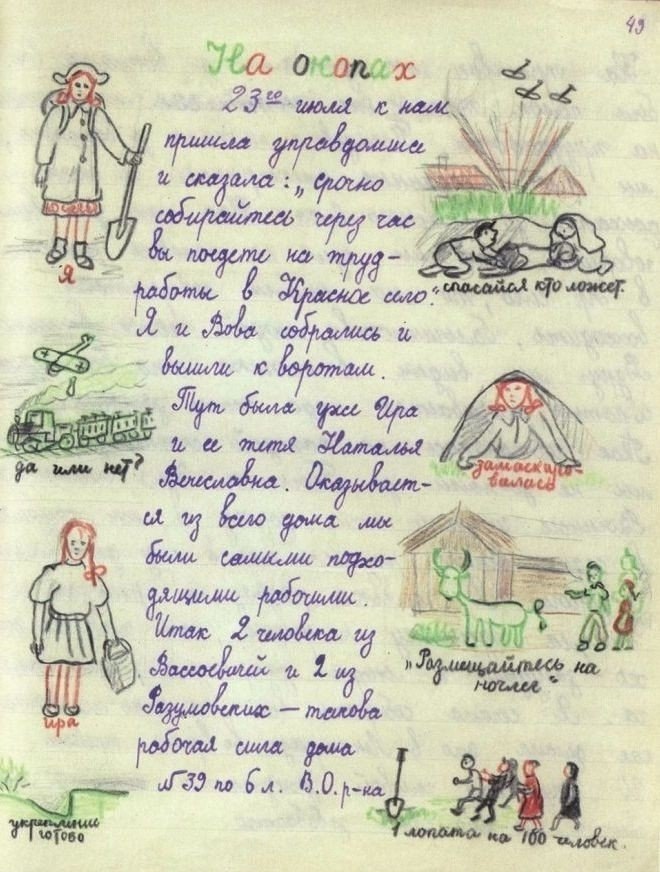 49
На окопах
23го июля к нам
пришла управдомша
и сказала: „срочно
собирайтесь через час
вы поедете на труд-
работы в Красное село."
Я и Вова собрались и
вышли к воротам.
Тут была уже Ира
и ее тетя Наталья
Вечеславна. Оказывает-
ся из всего дома мы
были самыми подхо-
дящими рабочими.
Итак 2 человека из
Вассоевичей и 2 из
Разумовских — такова
рабочая сила дома
№39 по 6 л. В.О. р-на
Я
да или нет?
ира
укрепление
готово
спасайся кто может.
замаскиро-
валась
„Размещайтесь на
ночлег"
1 лопата на 100 человек.